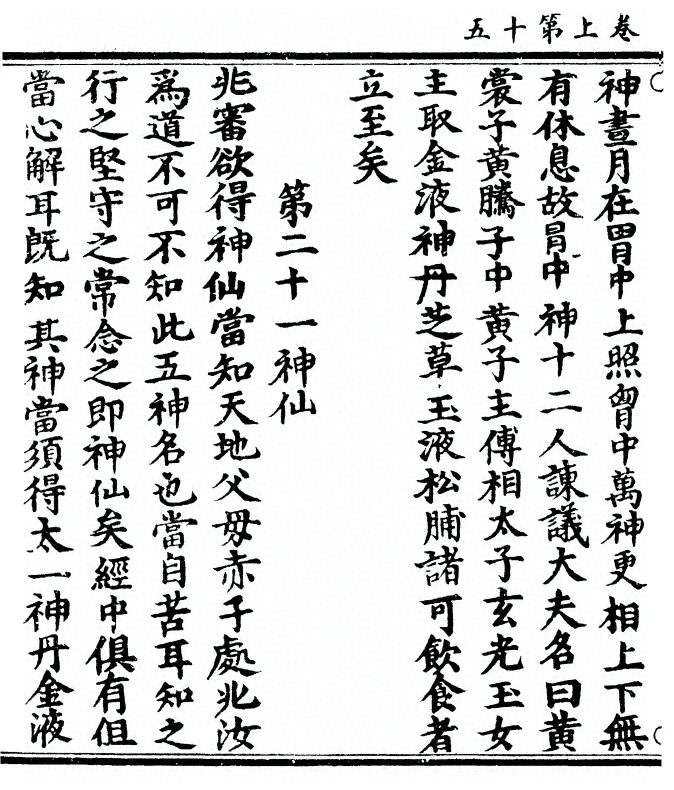 卷上第十五
神晝月在胃中上照胷中萬神更相上下無
有休息故胃中神十二人諫議大夫名曰黃
裳子黃騰子中黃子主傅相太子玄光玉女
主取金液神丹芝草玉液松脯諸可飲食者
立至矣
第二十一神仙
兆審欲得神仙當知天地父母赤子處兆汝
爲道不可不知此五神名也當自苦耳知之
行之堅守之常念之即神仙矣經中俱有但
當心解耳既知其神當須得太一神丹金液